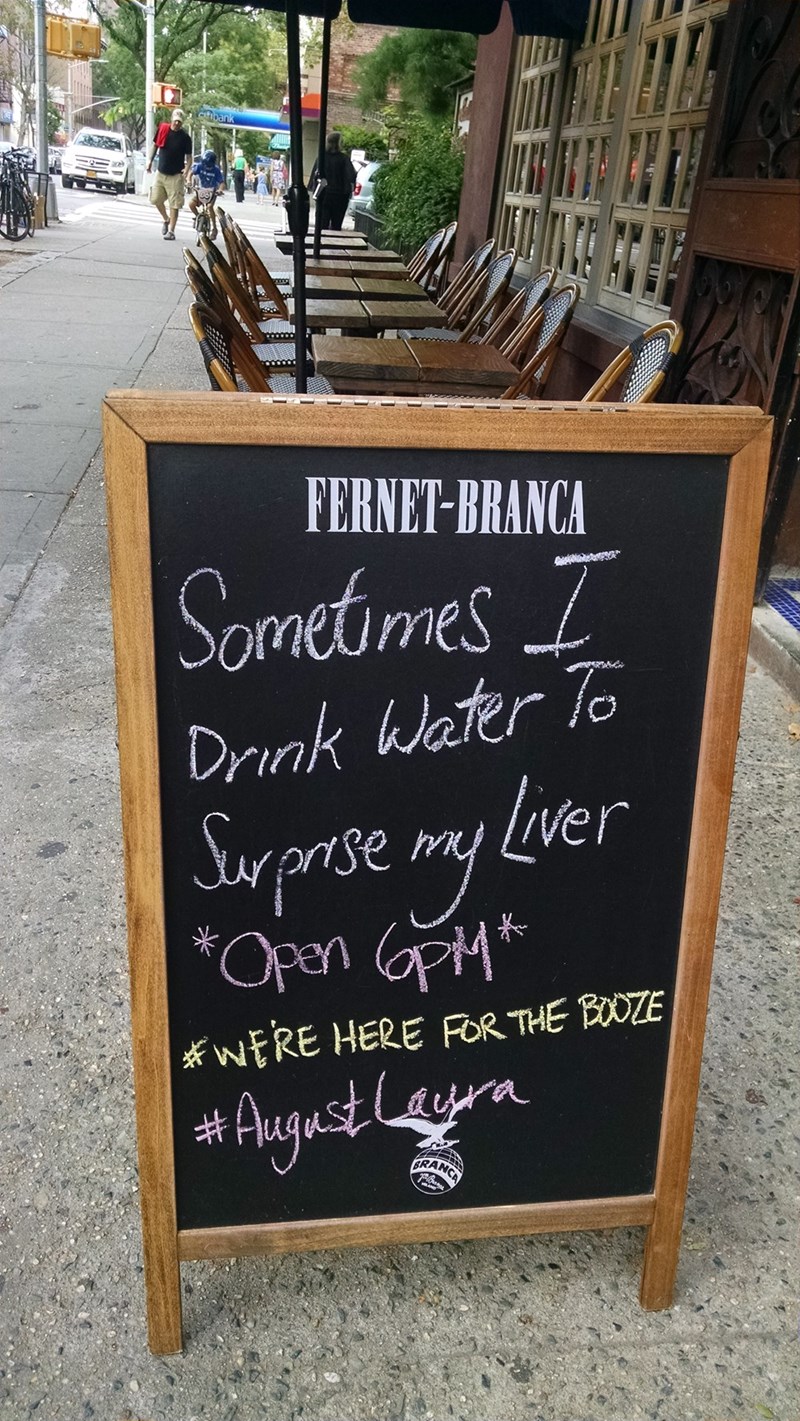 citibank
FERNET-BRANCA
Sometimes I
Drink Water To
Surprise my Liver
*Open 6PM*
#WE'RE HERE FOR THE BOOZE
#AugustLaura
BRANCA
MILANO